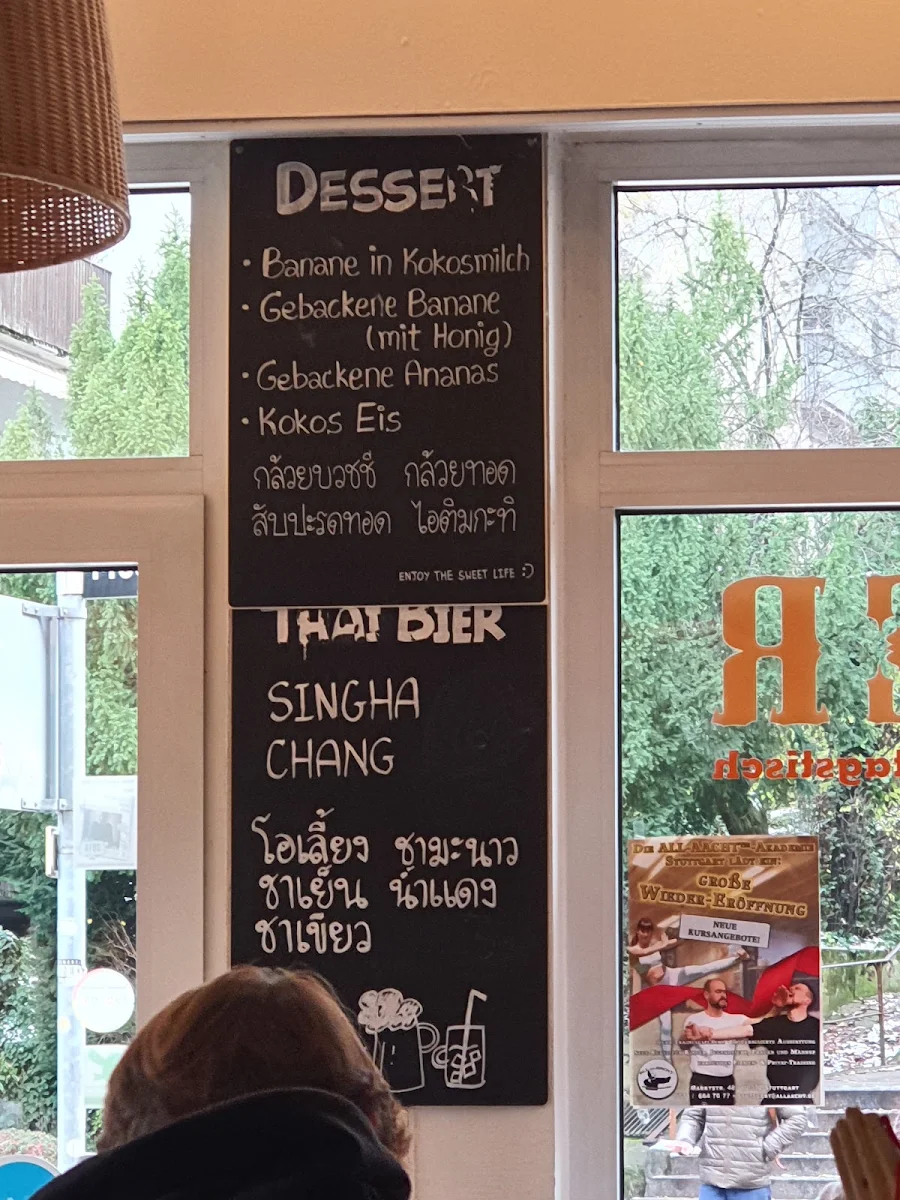 DESSERT
• Banane in Kokosmilch
• Gebackene Banane
(mit Honig)
• Gebackene Ananas
• Kokos Eis
กล้วยบวชชี กล้วยทอด
สับปะรดทอด ไอติมกะทิ
ENJOY THE SWEET LIFE :)
THAI BIER
SINGHA
CHANG
โอเลี้ยง ชามะนาว
ชาเย็น น้ำแดง
ชาเขียว
R
tagstisch
DIE ALL-MACHT-AKADEMIE
STUTTGART LÄDT EIN:
GROßE
WIEDER-ERÖFFNUNG
NEUE
KURSANGEBOTE!